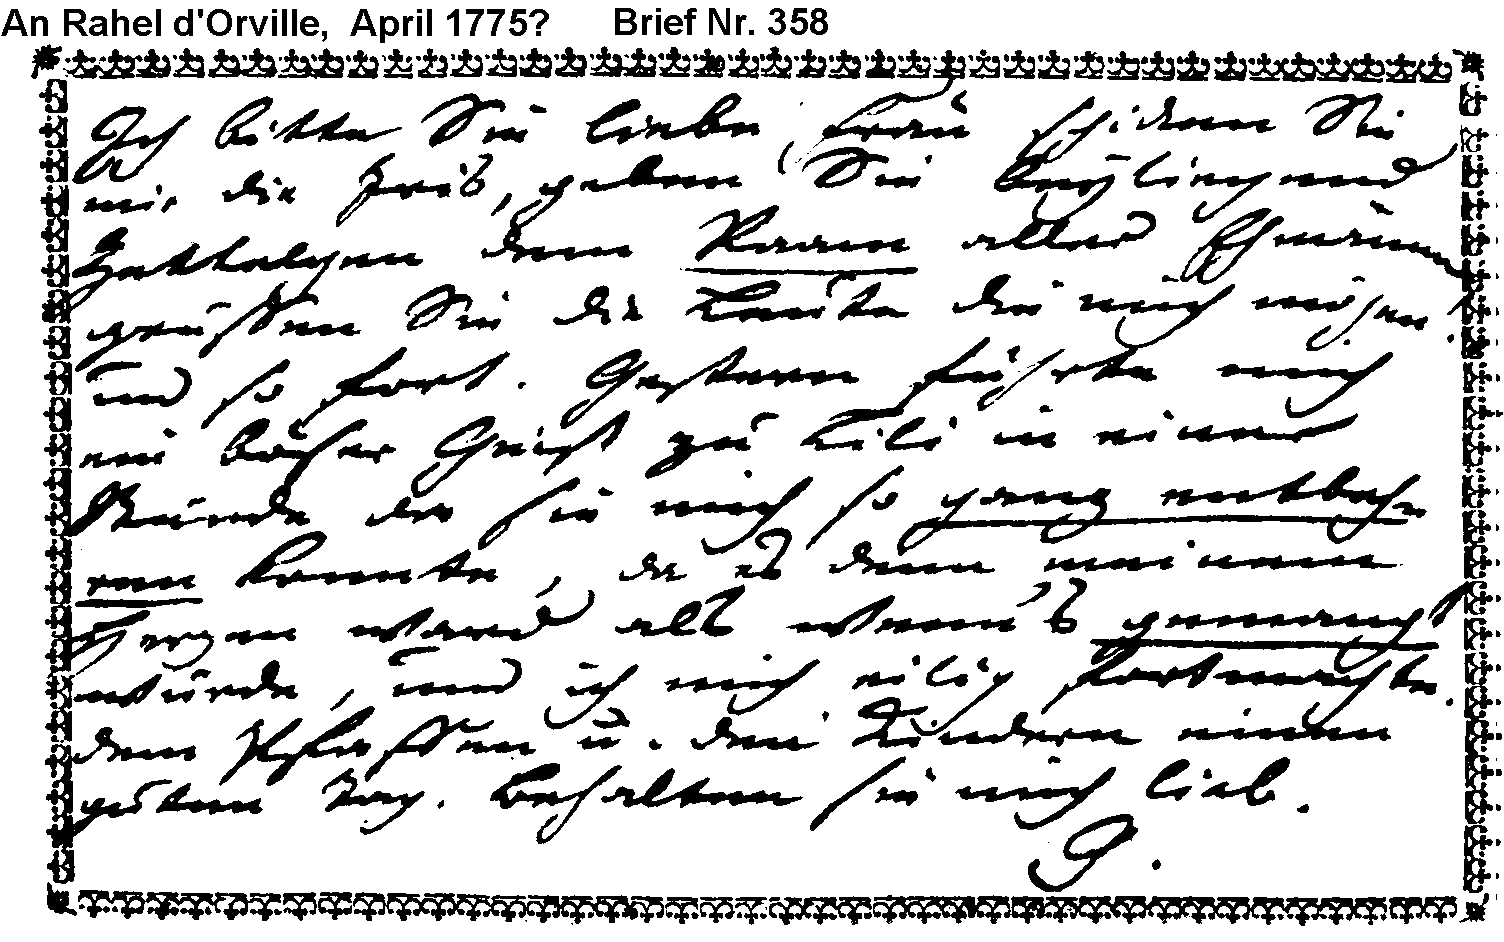 An Rahel d'Orville, April 1775? Brief Nr. 358
Ich bitte Sie liebe Frau schicken Sie
mir die Iris, geben Sie beyliegend
Zettelgen dem Raam aller Ehmänner
grüssen Sie die Leute die mich mögen.
und so fort. Gestern führte mich
ein böser Geist zu Lili in einer
Stunde da sie mich so ganz entbeh-
ren konnte, da es denn meinem
Herzen ward als wenns gemangt
würde, und ich mich eilig fortmachte.
dem Pfaffen u. den Kindern einen
guten Tag. Behalten sie mich lieb.
G.